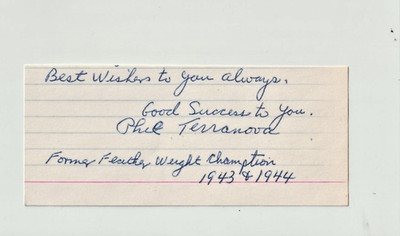 Best Wishes to You always.
Good Success to You.
Phil Terranova
Former Feather Weight Chamption
1943 & 1944